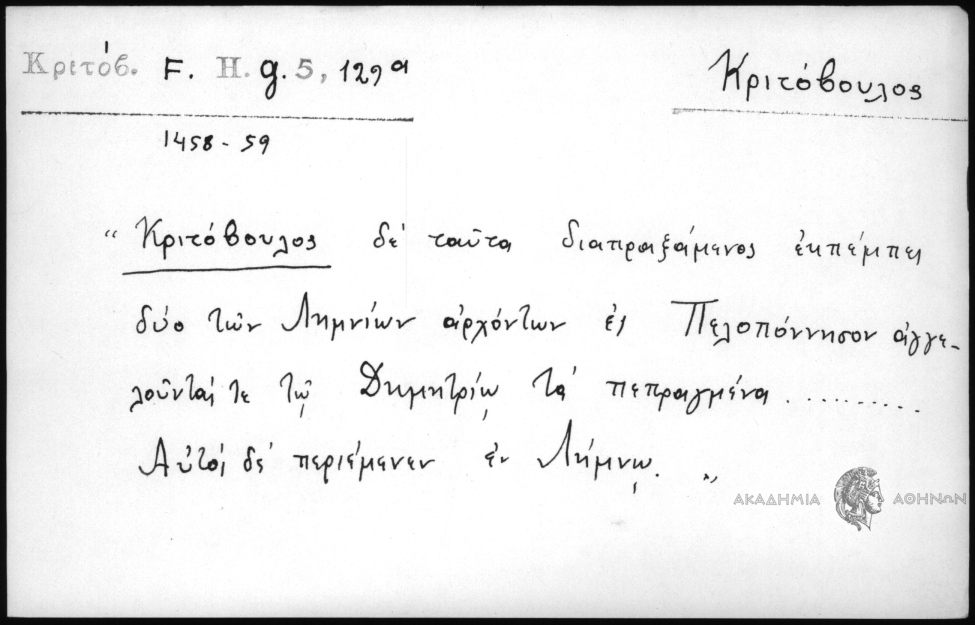 Κριτόβ. F. H. g. 5, 129ᵃ
Κριτόβουλος
1458 - 59
“ Κριτόβουλος δέ ταῦτα διαπραξάμενος ἐκπέμπει
δύο τῶν Λημνίων ἀρχόντων ἐς Πελοπόννησον ἀγγε-
λοῦντάς τε τῷ Δημητρίῳ τά πεπραγμένα ..........
Αὐτός δέ περιέμενεν ἐν Λήμνῳ. „
ΑΚΑΔΗΜΙΑ ΑΘΗΝΩΝ